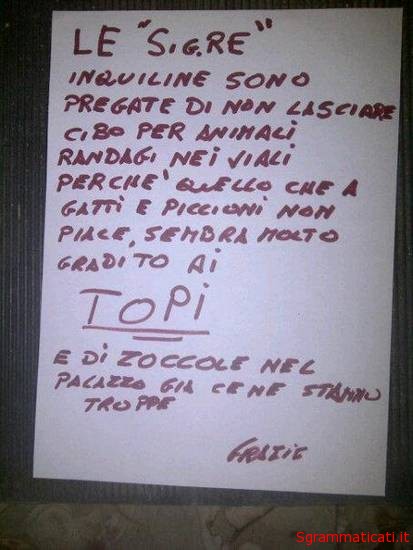 LE "SIG.RE"
INQUILINE SONO
PREGATE DI NON LASCIARE
CIBO PER ANIMALI
RANDAGI NEI VIALI
PERCHE' QUELLO CHE A
GATTI E PICCIONI NON
PIACE, SEMBRA MOLTO
GRADITO AI
TOPI
E DI ZOCCOLE NEL
PALAZZO GIA CE NE STANNO
TROPPE
GRAZIE
Sgrammaticati.it